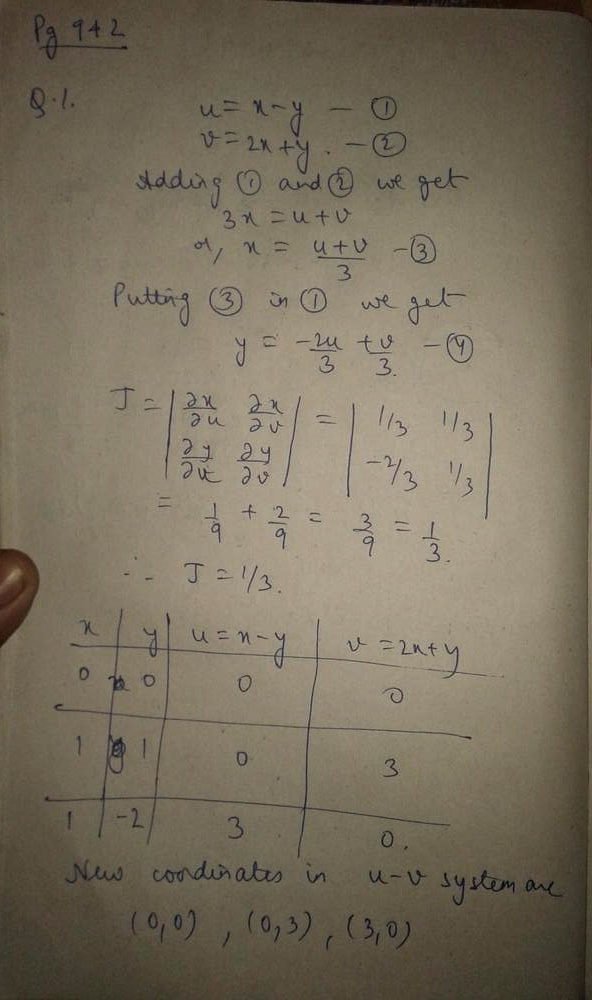 Pg 942
Q.1. u = x-y — ①
v = 2x+y. — ②
Adding ① and ② we get
3x = u+v
or, x = (u+v)/3 — ③
Putting ③ in ① we get
y = -2u/3 + v/3. — ④
J = | ∂x/∂u ∂x/∂v | = | 1/3 1/3 |
| ∂y/∂u ∂y/∂v | | -2/3 1/3 |
= 1/9 + 2/9 = 3/9 = 1/3.
∴ J = 1/3.
x y u = x-y v = 2x+y
0 0 0 0
1 1 0 3
1 -2 3 0.
New coordinates in u-v system are
(0,0) , (0,3) , (3,0)